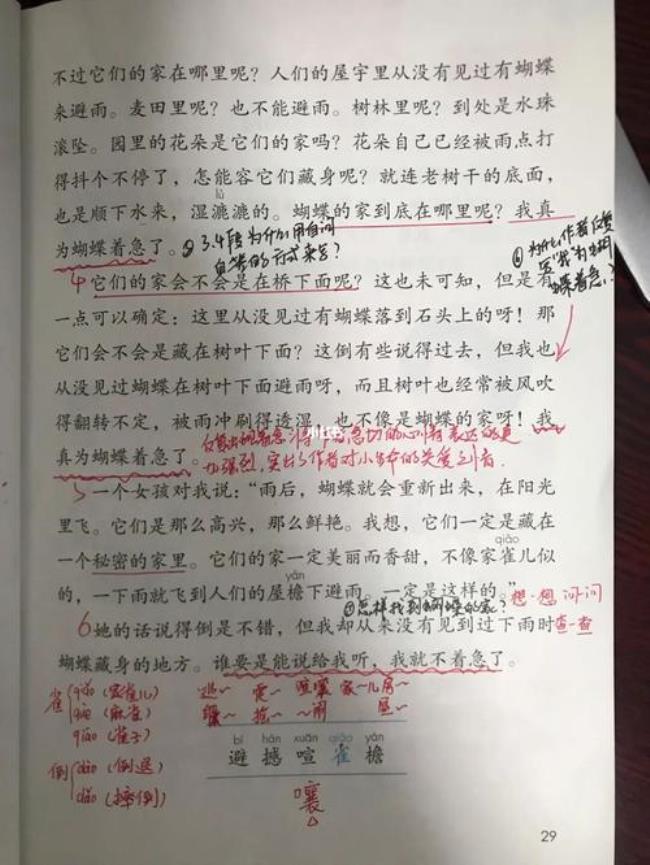 不过它们的家在哪里呢？人们的屋宇里从没有见过有蝴蝶
来避雨。麦田里呢？也不能避雨。树林里呢？到处是水珠
滚坠。园里的花朵是它们的家吗？花朵自己已经被雨点打
得抖个不停了，怎能容它们藏身呢？就连老树干的底面，
lù
也是顺下水来，湿漉漉的。蝴蝶的家到底在哪里呢？我真
为蝴蝶着急了。
3.4段为什么用自问
自答的方式来写？
为什么作者反复
写“我”为蝴
蝶着急？
4它们的家会不会是在桥下面呢？这也未可知，但是有
一点可以确定：这里从没见过有蝴蝶落到石头上的呀！那
它们会不会是藏在树叶下面？这倒有些说得过去，但我也
从没见过蝴蝶在树叶下面避雨呀，而且树叶也经常被风吹
得翻转不定，被雨冲刷得透湿，也不像是蝴蝶的家呀！我
真为蝴蝶着急了。
急切的心情表达的更
加强烈，突出了作者对小生命的关爱之情．
5一个女孩对我说：“雨后，蝴蝶就会重新出来，在阳光
里飞。它们是那么高兴，那么鲜艳。我想，它们一定是藏在
qiǎo
一个秘密的家里。它们的家一定美丽而香甜，不像家雀儿似
yán
的，一下雨就飞到人们的屋檐下避雨。一定是这样的。”
想一想 问一问
查一查
怎样找到蝴蝶的家？
6她的话说得倒是不错，但我却从来没有见到过下雨时
蝴蝶藏身的地方。谁要是能说给我听，我就不着急了。
雀
qiǎo（家雀儿）
què（麻雀）
qiāo（雀子）
逃～ 震～ 喧嚷 家～儿 房～
～闹
倒
dào（倒退）
dǎo（摔倒）
bì hàn xuān qiǎo yán
避 撼 喧 雀 檐
嚷
29